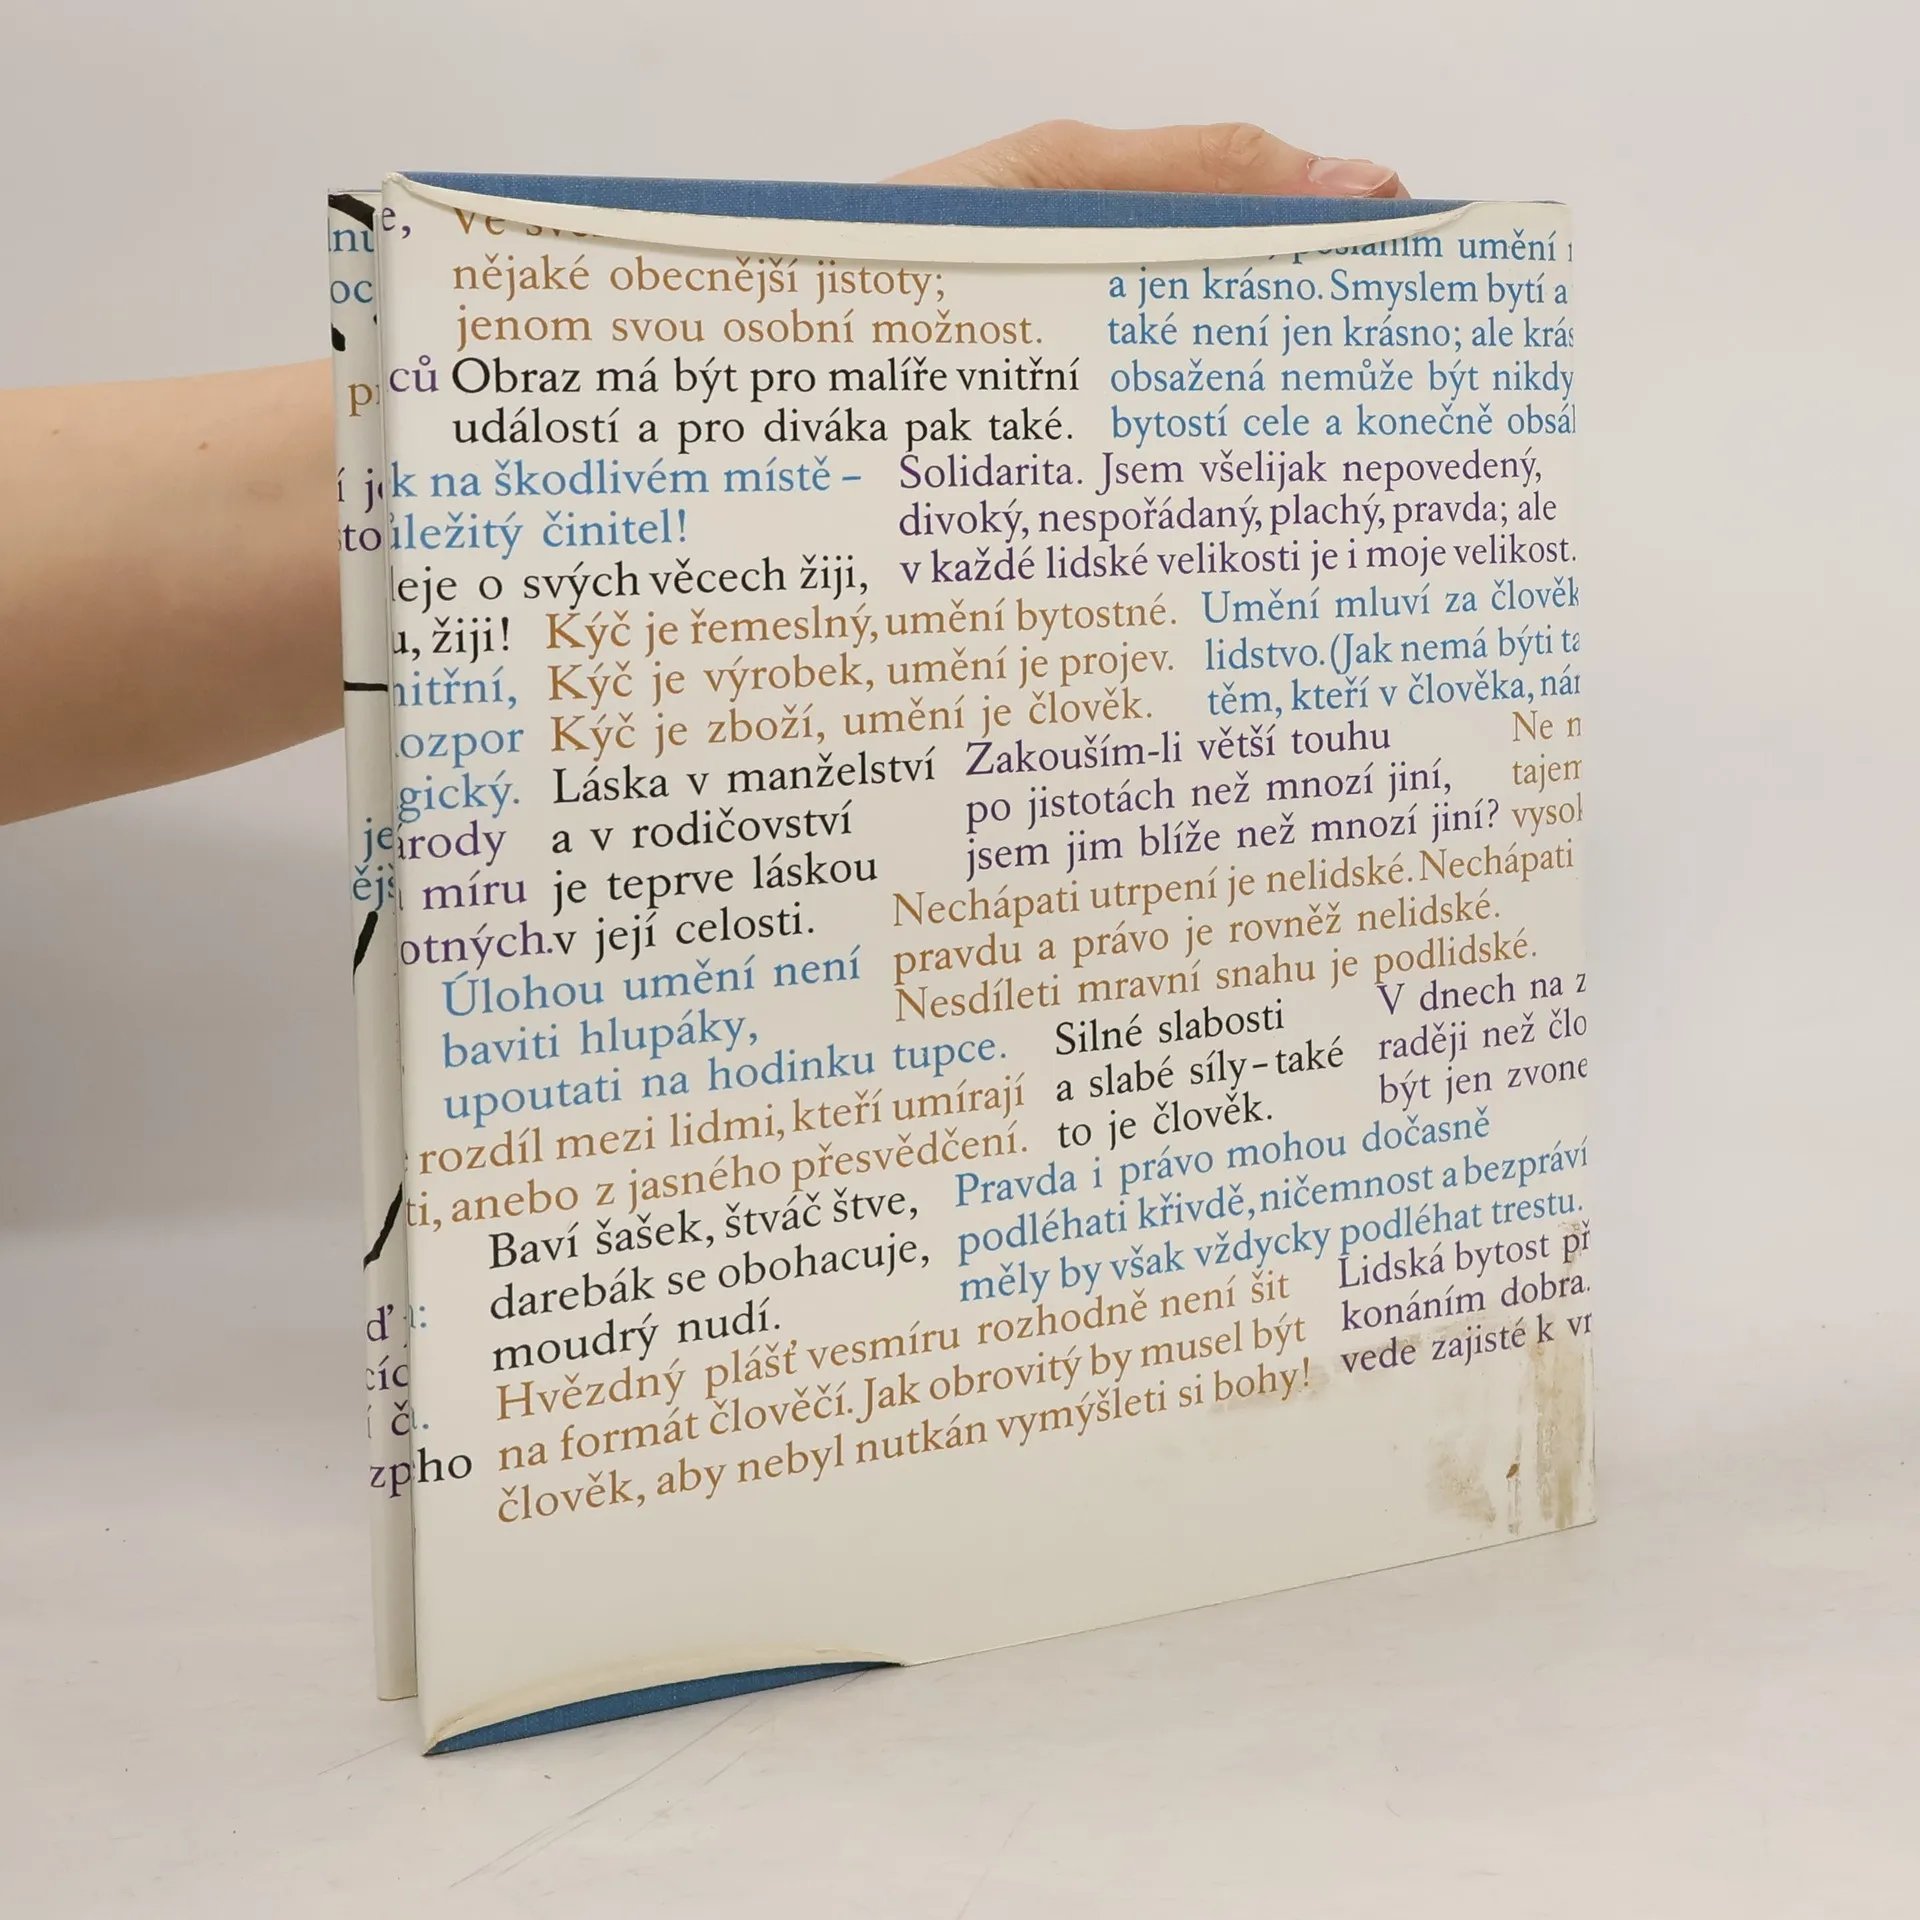 nějaké obecnější jistoty;
jenom svou osobní možnost.
umění
a jen krásno. Smyslem bytí a
také není jen krásno; ale
obsažená nemůže být nikdy
bytostí cele a konečně
ců
Obraz má být pro malíře vnitřní
událostí a pro diváka pak také.
k na škodlivém místě –
činitel!
Solidarita. Jsem všelijak nepovedený,
divoký, nespořádaný, plachý, pravda; ale
v každé lidské velikosti je i moje velikost.
o svých věcech žiji,
žiji!
Kýč je řemeslný, umění bytostné.
Kýč je výrobek, umění je projev.
Kýč je zboží, umění je člověk.
Umění mluví za
lidstvo. (Jak nemá býti
těm, kteří v člověka,
gický.
Láska v manželství
a v rodičovství
je teprve láskou
v její celosti.
míru
otných.
Zakouším-li větší touhu
po jistotách než mnozí jiní,
jsem jim blíže než mnozí jiní?
Ne
Nechápati utrpení je nelidské. Nechápati
pravdu a právo je rovněž nelidské.
Nesdíleti mravní snahu je podlidské.
Úlohou umění není
baviti hlupáky,
upoutati na hodinku tupce.
Silné slabosti
a slabé síly – také
to je člověk.
V dnech na
raději než
být jen
rozdíl mezi lidmi, kteří umírají
ti, anebo z jasného přesvědčení.
Baví šašek, štváč štve,
darebák se obohacuje,
moudrý nudí.
Pravda i právo mohou dočasně
podléhati křivdě, ničemnost a bezpráví
měly by však vždycky podléhat trestu.
Lidská bytost
konáním dobra.
vede zajisté k
Hvězdný plášť vesmíru rozhodně není šit
na formát človečí. Jak obrovitý by musel být
člověk, aby nebyl nutkán vymýšleti si bohy!